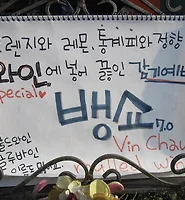 오렌지와 레몬, 통계피와 정향
와인에 넣어 끓인 감기예방
special♥
뱅쇼 7.0
Vin Chau
mulled w